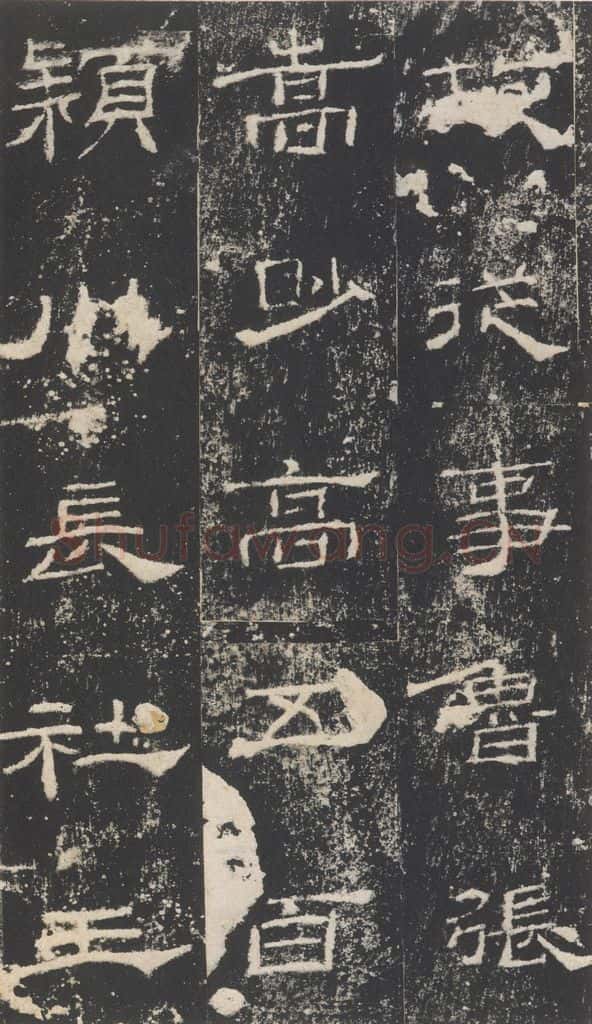 故從事魯張
嵩眇高五百
穎川長社王
Shufawang.cn